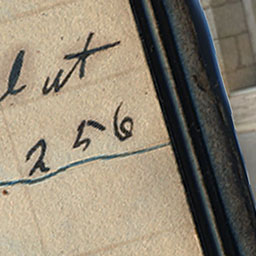 lut
256